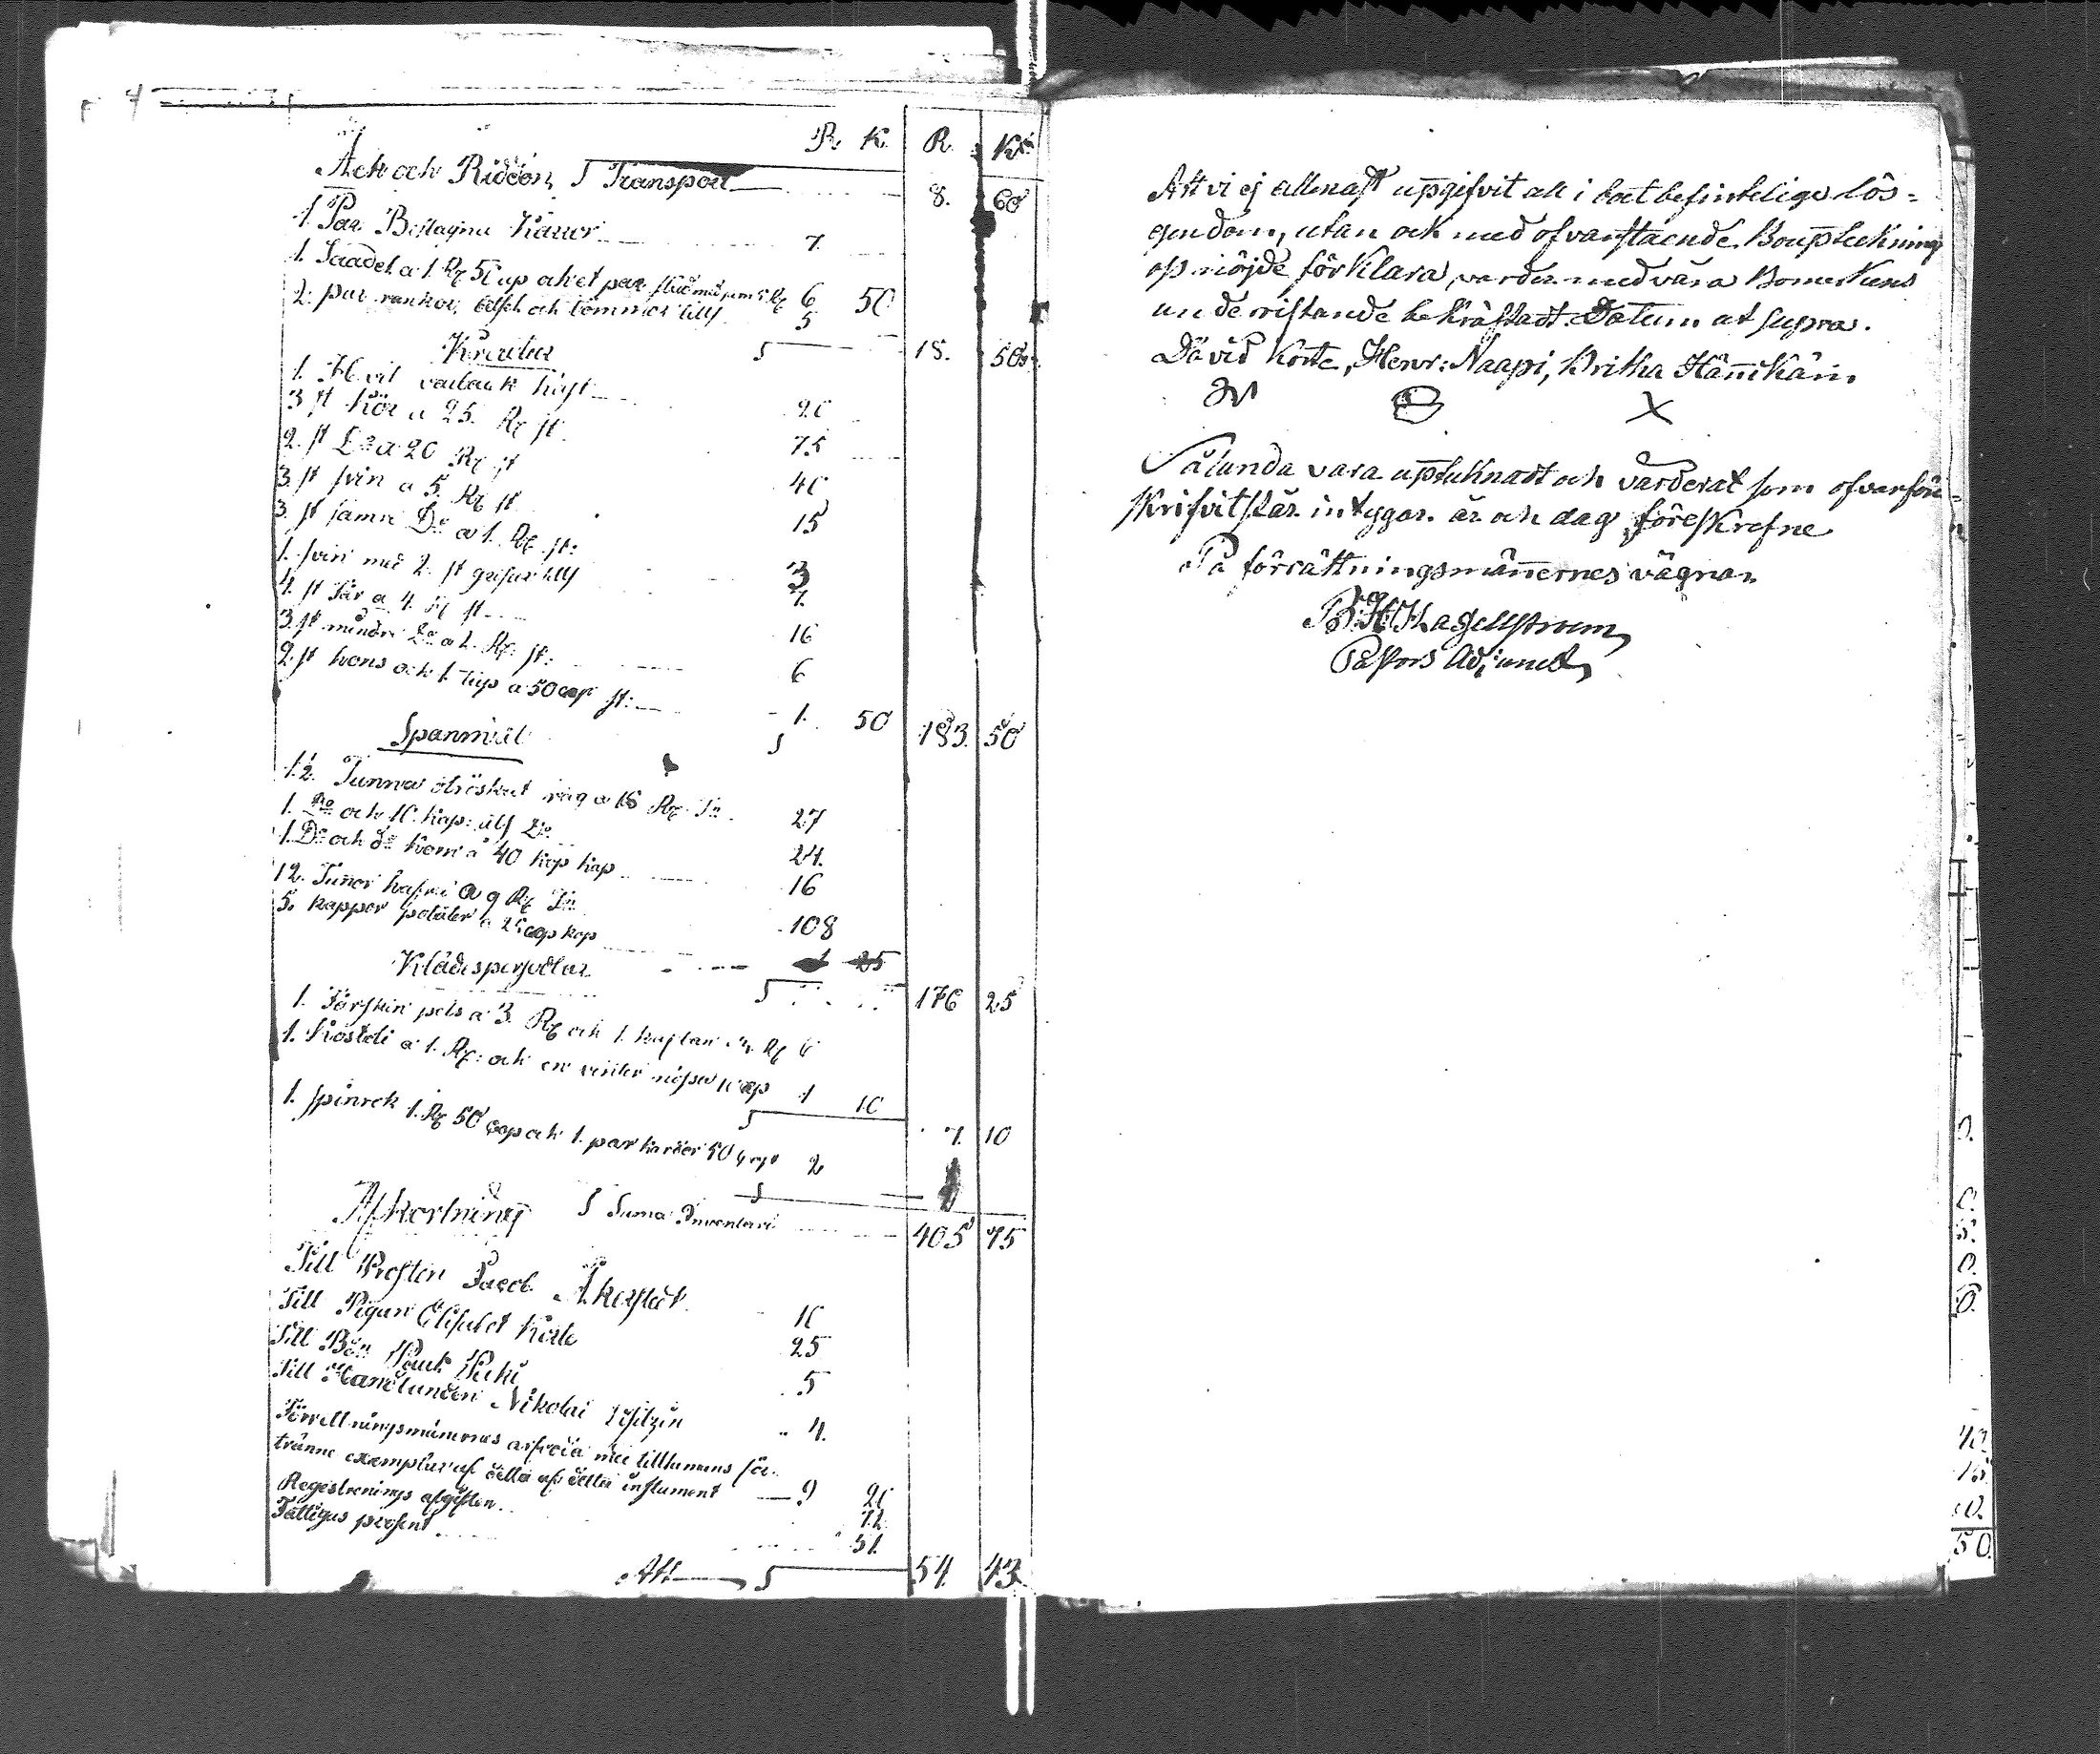 R. K. R. K
Åck och Riddon, S Transport 8. 60
1. Par Beslagna Kärror 7.
1. Saadel a 1. R 50 cop och et par 6 50
2. par rankor, och tömmar till 5
S 18. 50
Kreatur
1. Hvit valack häst 20
3 st Kor a 25. R st. 75
2. st Do a 20 R st 40
3 st svin a 5. R st 15
3. st samre Do a 1. R st: 3
1. svin med 2. st grisar till 7.
4. st Får a 4. R st 16
3. st mindre Do a 2. R st: 6
2. st höns och 1. tup a 50 cop st: 1. 50
S 183. 50
Spanmål
1½. Tunna otröskat råg a 18 R Tn. 27
1. Do och 10. kap: Do 24.
1. Do och Do korn a 40 kop kap 16
12. Tunor hafra a 9 R Tn 108
5. kappor potäter a 25 cop kap 1 25
S 176 25
Klädespersedlar
1. Fårskin pels a 3. R och 1. kaftan R 6
1. a 1. R: och en vinter mössa 10 cop 1 10
S 7. 10
1. spinrok 1. R 50 cop och 1. par kardor 50 2
S
S Suma Inventarii 405 75
Afkortning
Till Prosten Jacob Åkerstedt 10
Till Pigan Elisabet Körte 25
Till Bon 5
Till Handlanden Nikolai 4.
Förrettningsmännernes med tillhammans för
tränne exemplar af detta af detta instument 9 20
Regestrerings afgiften 72
Fattigas prosent 51
Att S 54 43
Att vi ej allenast upgifvit all i boet befinteliga lös=
egendom, utan och med ofvanstående Bouptekning
förklara, varder med våra Bomerkens
underristande bekräftadt. Datum at supra.
David Körte, Henr: Naapi, Britha Hännikäin
X
Sålunda vara upteknadt och värderat som ofvanför=
skrifvit står intygar. år och dag föreskrefne
På förrättningsmännernes vägnar
B. H. Hagellstroem,
Pastors Adjunct,
50